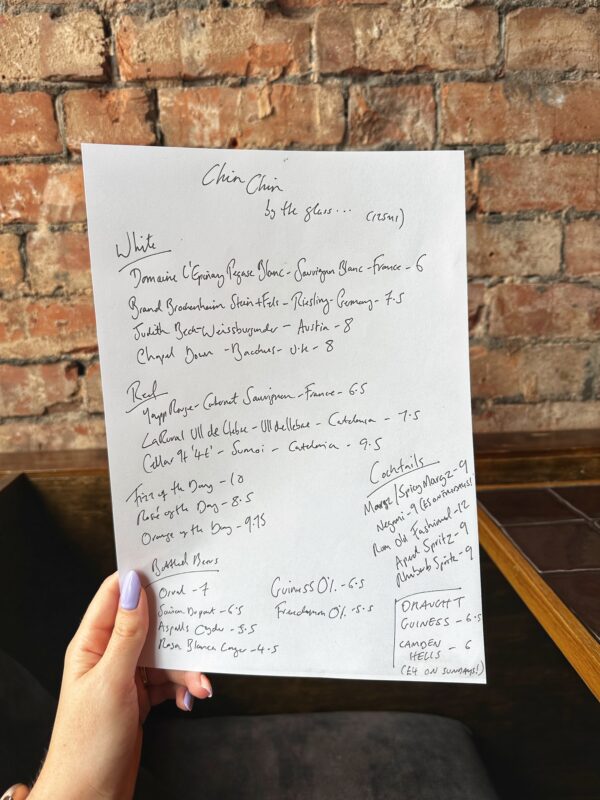 Chin Chin
by the glass... (125ml)
White
Domaine L'Epinay Pegase Blanc - Sauvignon Blanc - France - 6
Brand Brockenheim Stein + Fels - Riesling - Germany - 7.5
Judith Beck - Weissburgunder - Austria - 8
Chapel Down - Bacchus - U.K - 8
Red
Rouge - Cabernet Sauvignon - France - 6.5
LaRural Ull de Llebre - Ull de llebre - Catelonia - 7.5
Cellar 9+ '4t' - Sumoi - Catelonia - 9.5
Fizz of the Day - 10
Rosé of the Day - 8.5
Orange of the Day - 9.75
Cocktails
Margz/Spicy Margz - 9
Negroni - 9 (£5 on Thursdays!)
Rum Old Fashioned - 12
Aperol Spritz - 9
Rhubarb Spritz - 9
Bottled Beers
Orval - 7
Saison Dupont - 6.5
Aspalls Cyder - 5.5
Rosa Blanca Lager - 4.5
Guiness 0% - 6.5
Freedamm 0% - 5.5
DRAUGHT
GUINESS - 6.5
CAMDEN
HELLS - 6
(£4 ON SUNDAYS!)